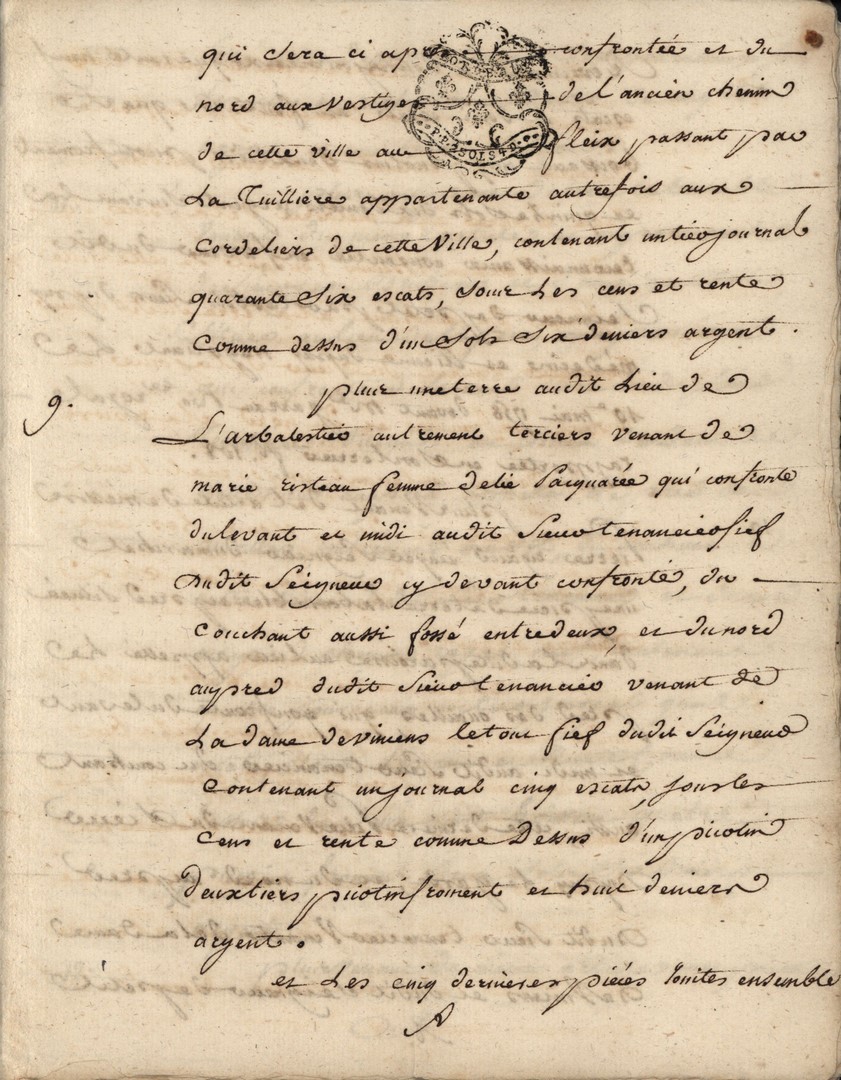 qui sera ci après confrontée et du
nord aux vestiges de l'ancien chemin
de cette ville au fleix passant par
La Tuillière appartenante autrefois aux
Cordeliers de cette Ville, contenant un tiers journal
quarante six escats, sous Les cens et rente
comme dessus d'un sols six deniers argent.
9.
plus une terre audit Lieu de
L'arbalestier autrement terciers venant de
marie risteau femme d'elie Pacquarée qui confronte
du levant et midi audit Sieur tenancier fief
Dudit Seigneur cy devant confronté, du
couchant aussi fossé entredeux, et du nord
au pred dudit Sieur tenancier venant de
La dame de vincens le tout fief dudit Seigneur
contenant un journal cinq escats, sous les
cens et rente comme Dessus d'un picotin
deux tiers picotin froment et huit deniers
argent.
et Les cinq dernieres pièces ensemble